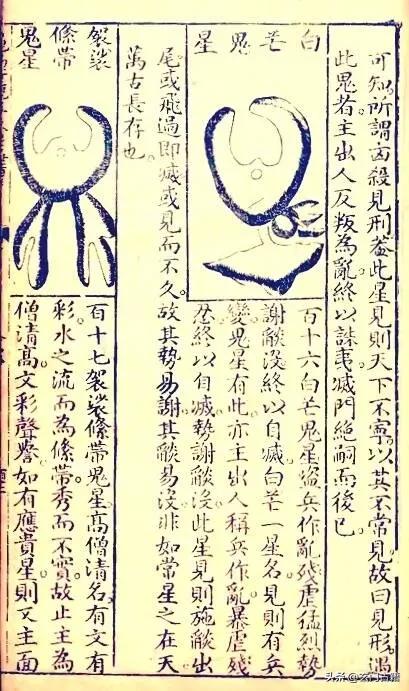 可知。所謂凶殺見刑。蓋此星見則天下不寧。以其不常見。故曰見形。遇
此鬼者。主出人反叛為亂。終以誅夷。滅門絕嗣而後已。
白芒鬼星
百十六白芒鬼星。盜兵作亂。殘虐猛烈。勢
謝燄沒。終以自滅。白芒一星名。見則有兵
變。鬼星有此。亦主出人稱兵作亂。暴虐殘
忍。終以自滅。勢謝燄沒。此星見則施燄出
尾。或飛過即滅。或見而不久。故其勢易謝。其燄易沒。非如常星之在天。
萬古長存也。
袈裟
絛帶
鬼星
百十七袈裟絛帶鬼星。高僧清名。有文有
彩。水之流而為絛帶。秀而不實。故止主為
僧清高。文彩聲譽。如有應貴星。則又主面
头条@玄门古籍